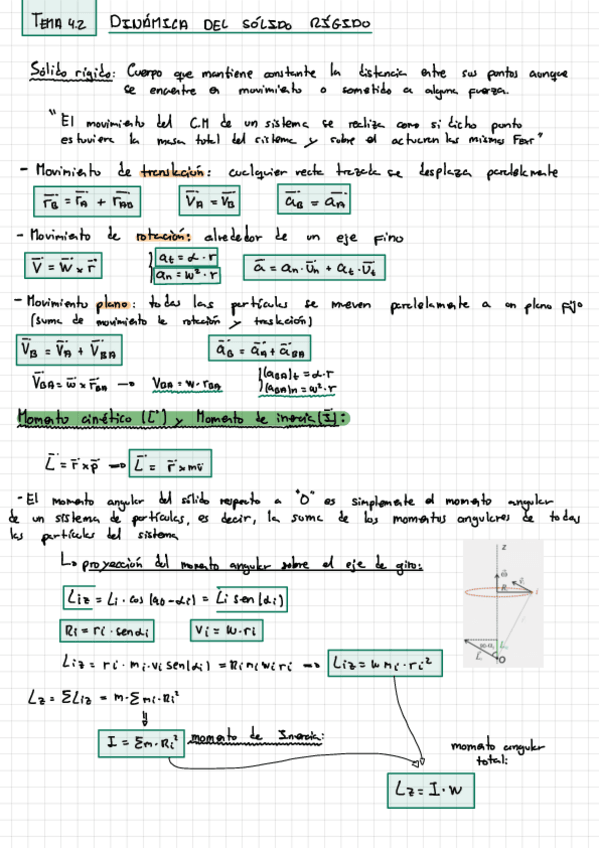 TEMA 4.2 DINÁMICA DEL SÓLIDO RÍGIDO
Sólido rígido: Cuerpo que mantiene constante la distancia entre sus puntos aunque
se encuentre en movimiento o sometido a alguna fuerza.
"El movimiento del C.M de un sistema se realiza como si dicho punto
estuviera la masa total del sistema y sobre el actuaran las mismas Fext"
- Movimiento de translación: cualquier recta trazada se desplaza paralelamente
r⃗B = r⃗A + r⃗AB V⃗A = V⃗B a⃗B = a⃗A
- Movimiento de rotación: alrededor de un eje fino
V⃗ = w⃗ × r⃗ at = α · r a⃗ = an · u⃗n + at · u⃗t
an = w² · r
- Movimiento plano: todas las partículas se mueven paralelamente a un plano fijo
(suma de movimiento de rotación y traslación)
V⃗B = V⃗A + V⃗BA a⃗B = a⃗A + a⃗BA
V⃗BA = w⃗ × r⃗BA → VBA = w · rBA (aBA)t = α · r
(aBA)n = w² · r
Momento cinético (L⃗) y Momento de inercia (I):
L⃗ = r⃗ × p⃗ → L⃗ = r⃗ × mv⃗
- El momento angular del sólido respecto a "O" es simplemente el momento angular
de un sistema de partículas, es decir, la suma de los momentos angulares de todas
las partículas del sistema
↳ proyección del momento angular sobre el eje de giro:
Liz = Li · cos (90 - αi) = Li sen (αi)
Ri = ri · senαi Vi = w · ri
Liz = ri · mi · vi sen(αi) = Ri mi w ri → Liz = w mi · ri²
Lz = ΣLiz = m · Σ mi · Ri²
⇓
I = Σm · Ri² momento de Inercia:
momento angular
total:
Lz = I · w
z
R
i
O